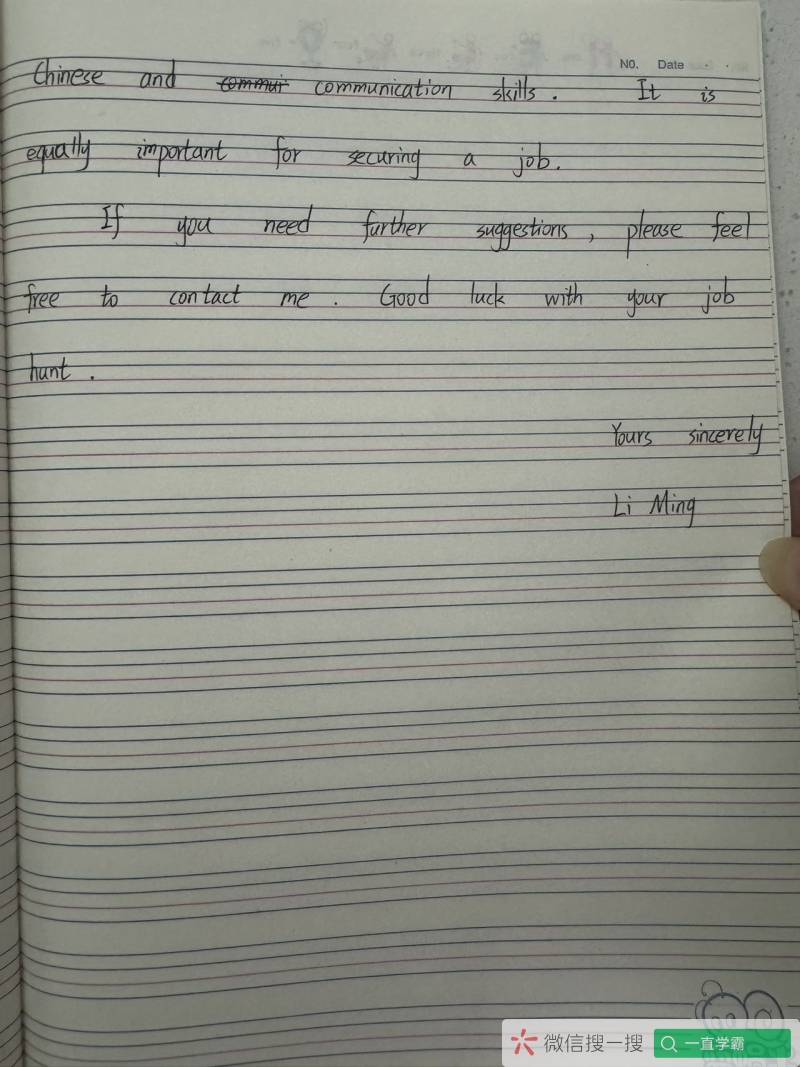 NO. Date
Chinese and commui communication skills. It is
equally important for securing a job.
If you need further suggestions, please feel
free to contact me. Good luck with your job
hunt.
Yours sincerely
Li Ming
微信搜一搜 一直学霸